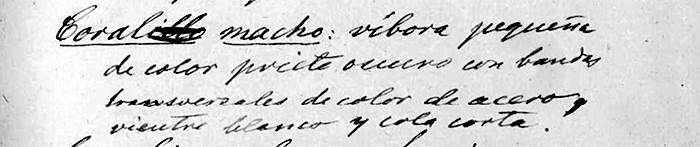 Coralillo macho: víbora pequeña
de color prieto oscuro con bandas
transversales de color de acero y
vientre blanco y cola corta.